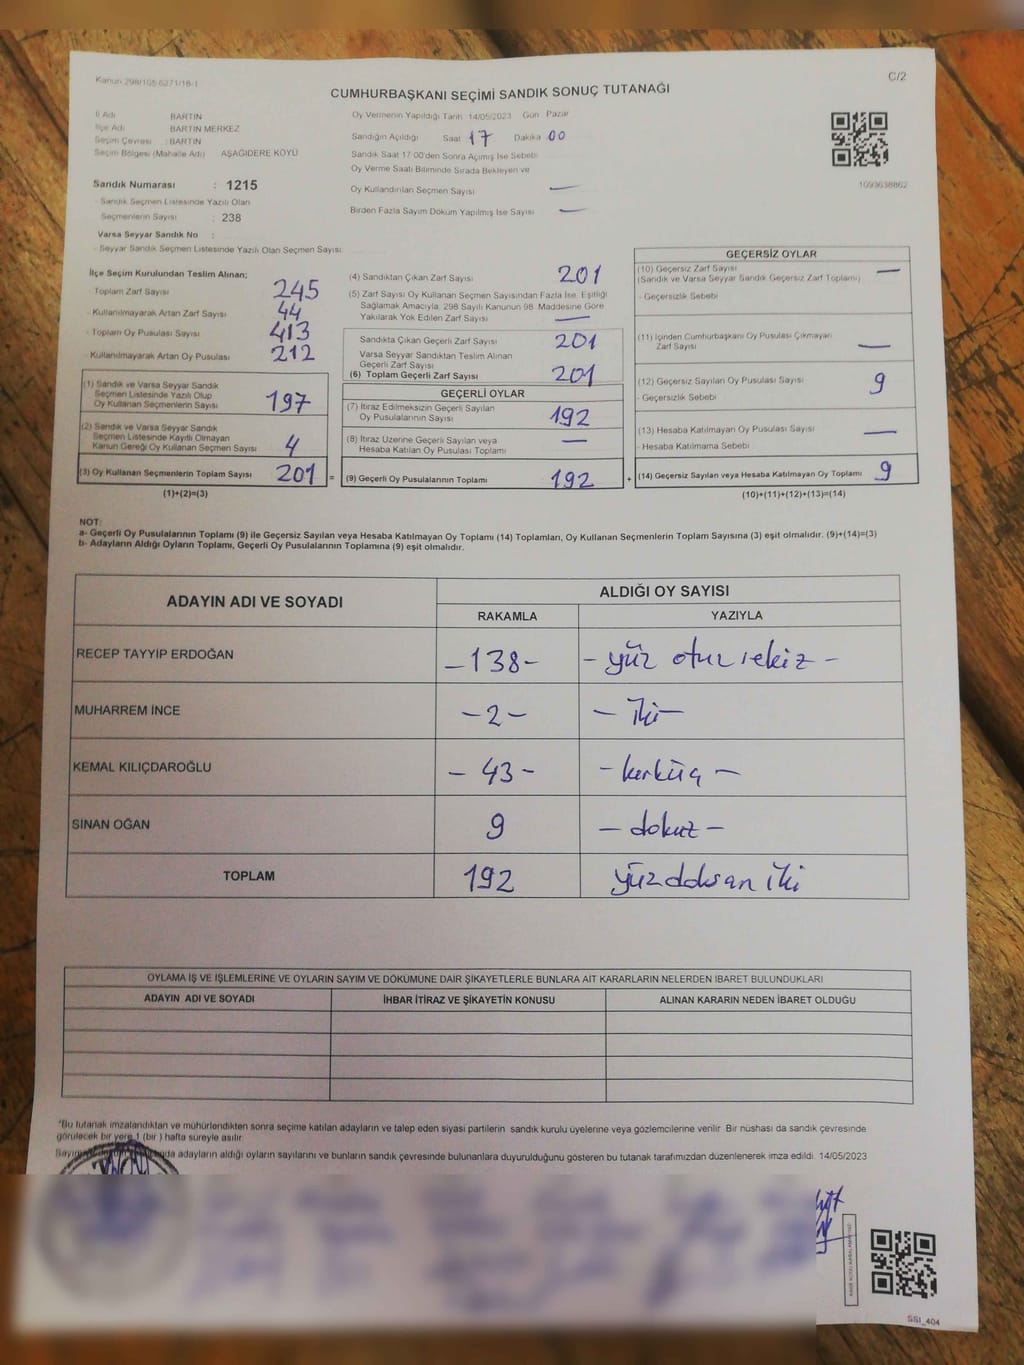 Kanun 298/105 6271/18-1
C/2
CUMHURBAŞKANI SEÇİMİ SANDIK SONUÇ TUTANAĞI
İl Adı BARTIN
İlçe Adı BARTIN MERKEZ
Seçim Çevresi : BARTIN
Seçim Bölgesi (Mahalle Adı) AŞAĞIDERE KÖYÜ
Sandık Numarası : 1215
- Sandık Seçmen Listesinde Yazılı Olan
Seçmenlerin Sayısı : 238
Varsa Seyyar Sandık No :
- Seyyar Sandık Seçmen Listesinde Yazılı Olan Seçmen Sayısı
Oy Vermenin Yapıldığı Tarih 14/05/2023 Gün Pazar
Sandığın Açıldığı Saat 17 Dakika 00
Sandık Saat 17:00'den Sonra Açılmış İse Sebebi
Oy Verme Saati Bitiminde Sırada Bekleyen ve
Oy Kullandırılan Seçmen Sayısı —
Birden Fazla Sayım Döküm Yapılmış İse Sayısı —
1093638862
İlçe Seçim Kurulundan Teslim Alınan;
- Toplam Zarf Sayısı 245
- Kullanılmayarak Artan Zarf Sayısı 44
- Toplam Oy Pusulası Sayısı 413
- Kullanılmayarak Artan Oy Pusulası 212
(1) Sandık ve Varsa Seyyar Sandık
Seçmen Listesinde Yazılı Olup
Oy Kullanan Seçmenlerin Sayısı 197
(2) Sandık ve Varsa Seyyar Sandık
Seçmen Listesinde Kayıtlı Olmayan
Kanun Gereği Oy Kullanan Seçmen Sayısı 4
(3) Oy Kullanan Seçmenlerin Toplam Sayısı 201 =
(1)+(2)=(3)
(4) Sandıktan Çıkan Zarf Sayısı 201
(5) Zarf Sayısı Oy Kullanan Seçmen Sayısından Fazla İse, Eşitliği
Sağlamak Amacıyla, 298 Sayılı Kanunun 98. Maddesine Göre
Yakılarak Yok Edilen Zarf Sayısı —
Sandıkta Çıkan Geçerli Zarf Sayısı 201
Varsa Seyyar Sandıktan Teslim Alınan
Geçerli Zarf Sayısı
(6) Toplam Geçerli Zarf Sayısı 201
GEÇERLİ OYLAR
(7) İtiraz Edilmeksizin Geçerli Sayılan
Oy Pusulalarının Sayısı 192
(8) İtiraz Üzerine Geçerli Sayılan veya
Hesaba Katılan Oy Pusulası Toplamı —
(9) Geçerli Oy Pusulalarının Toplamı 192 +
GEÇERSİZ OYLAR
(10) Geçersiz Zarf Sayısı —
(Sandık ve Varsa Seyyar Sandık Geçersiz Zarf Toplamı)
- Geçersizlik Sebebi
(11) İçinden Cumhurbaşkanı Oy Pusulası Çıkmayan
Zarf Sayısı —
(12) Geçersiz Sayılan Oy Pusulası Sayısı 9
- Geçersizlik Sebebi
(13) Hesaba Katılmayan Oy Pusulası Sayısı —
- Hesaba Katılmama Sebebi
(14) Geçersiz Sayılan veya Hesaba Katılmayan Oy Toplamı 9
(10)+(11)+(12)+(13)=(14)
NOT:
a- Geçerli Oy Pusulalarının Toplamı (9) ile Geçersiz Sayılan veya Hesaba Katılmayan Oy Toplamı (14) Toplamları, Oy Kullanan Seçmenlerin Toplam Sayısına (3) eşit olmalıdır. (9)+(14)=(3)
b- Adayların Aldığı Oyların Toplamı, Geçerli Oy Pusulalarının Toplamına (9) eşit olmalıdır.
ADAYIN ADI VE SOYADI
ALDIĞI OY SAYISI
RAKAMLA YAZIYLA
RECEP TAYYİP ERDOĞAN -138- - yüz otuz sekiz -
MUHARREM İNCE -2- - iki -
KEMAL KILIÇDAROĞLU - 43 - - kırküç -
SİNAN OĞAN 9 - dokuz -
TOPLAM 192 yüz doksan iki
OYLAMA İŞ VE İŞLEMLERİNE VE OYLARIN SAYIM VE DÖKÜMÜNE DAİR ŞİKAYETLERLE BUNLARA AİT KARARLARIN NELERDEN İBARET BULUNDUKLARI
ADAYIN ADI VE SOYADI İHBAR İTİRAZ VE ŞİKAYETİN KONUSU ALINAN KARARIN NEDEN İBARET OLDUĞU
"Bu tutanak imzalandıktan ve mühürlendikten sonra seçime katılan adayların ve talep eden siyasi partilerin sandık kurulu üyelerine veya gözlemcilerine verilir. Bir nüshası da sandık çevresinde
görülecek bir yere 1 (bir) hafta süreyle asılır.
adayların aldığı oyların sayılarını ve bunların sandık çevresinde bulunanlara duyurulduğunu gösteren bu tutanak tarafımızdan düzenlenerek imza edildi. 14/05/2023
SSİ_404